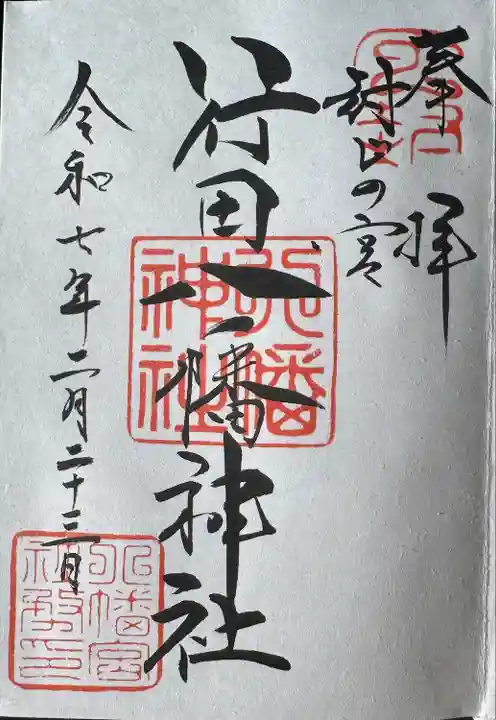 奉拝
封じの宮
行田八幡神社
令和七年二月二十三日
八幡神社
八幡宮社務印